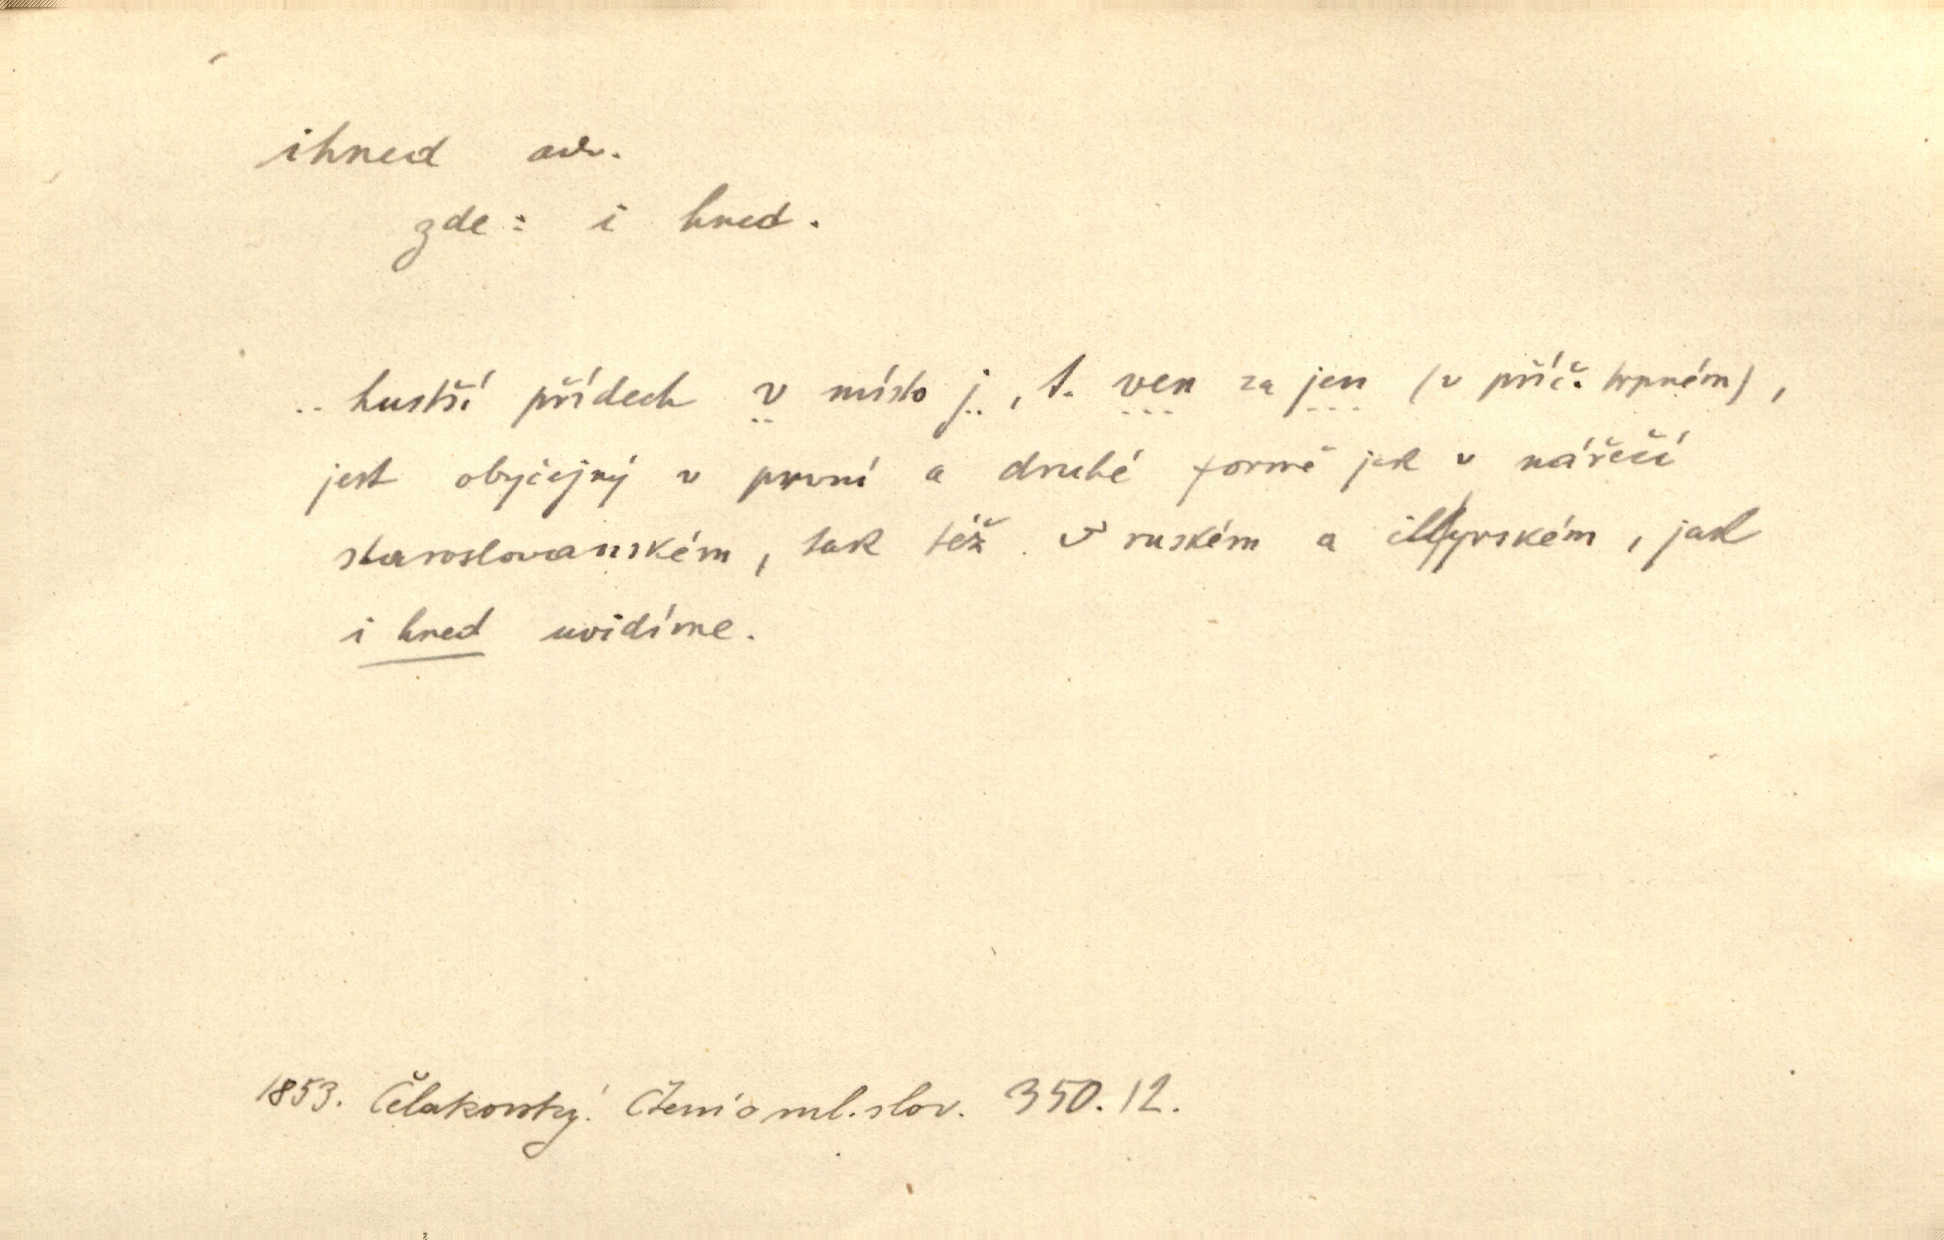 ihned adv.
zde: i hned.
.. hustší přídech v místo j, t. ven za jen (v příč. trpném),
jest obyčejný v první a druhé formě jak v nářečí
staroslovanském, tak též v ruském a illyrském, jak
i hned uvidíme.
1853. Čelakovský. Čtení o ml. slov. 350.12.